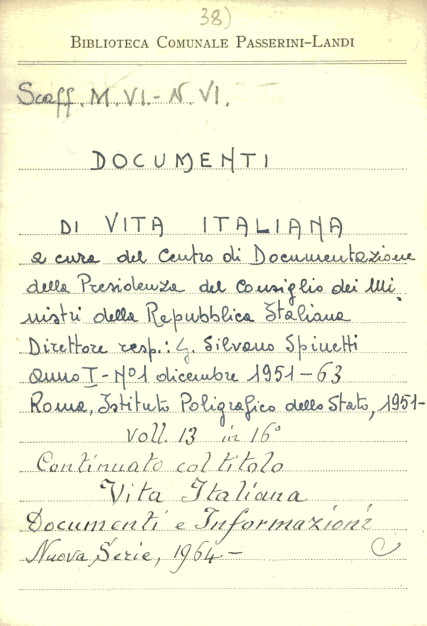 38)
BIBLIOTECA COMUNALE PASSERINI-LANDI
Scaff. M. VI. - N. VI.
DOCUMENTI
DI VITA ITALIANA
a cura del Centro di Documentazione
della Presidenza del Consiglio dei Mi
nistri della Repubblica Italiana
Direttore resp.: G. Silvano Spinetti
Anno I - Nº1 dicembre 1951-63
Roma, Istituto Poligrafico dello Stato, 1951-
voll. 13 in 16º
Continuato col titolo
Vita Italiana
Documenti e Informazioni
Nuova Serie, 1964-